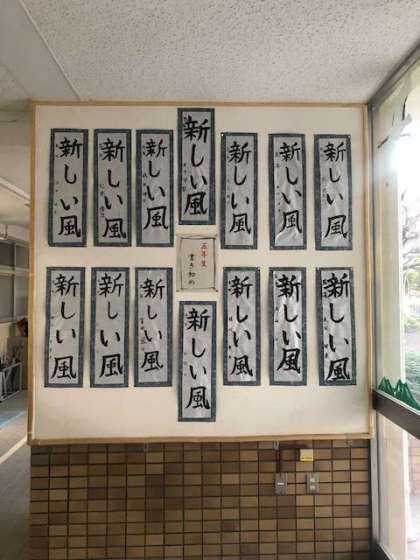 新しい風
新しい風
新しい風
新しい風
新しい風
新しい風
新しい風
五年生
書き初め
新しい風
新しい風
新しい風
新しい風
新しい風
新しい風
新しい風